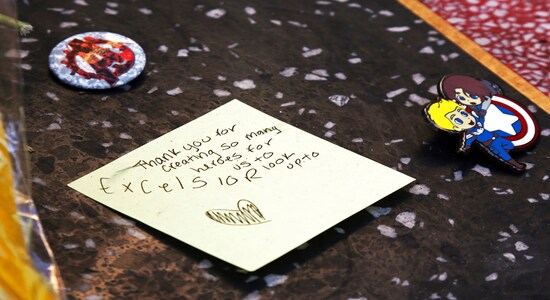 Thank you for
creating so many
heroes for
us to
look
up to
ExCelSIOR